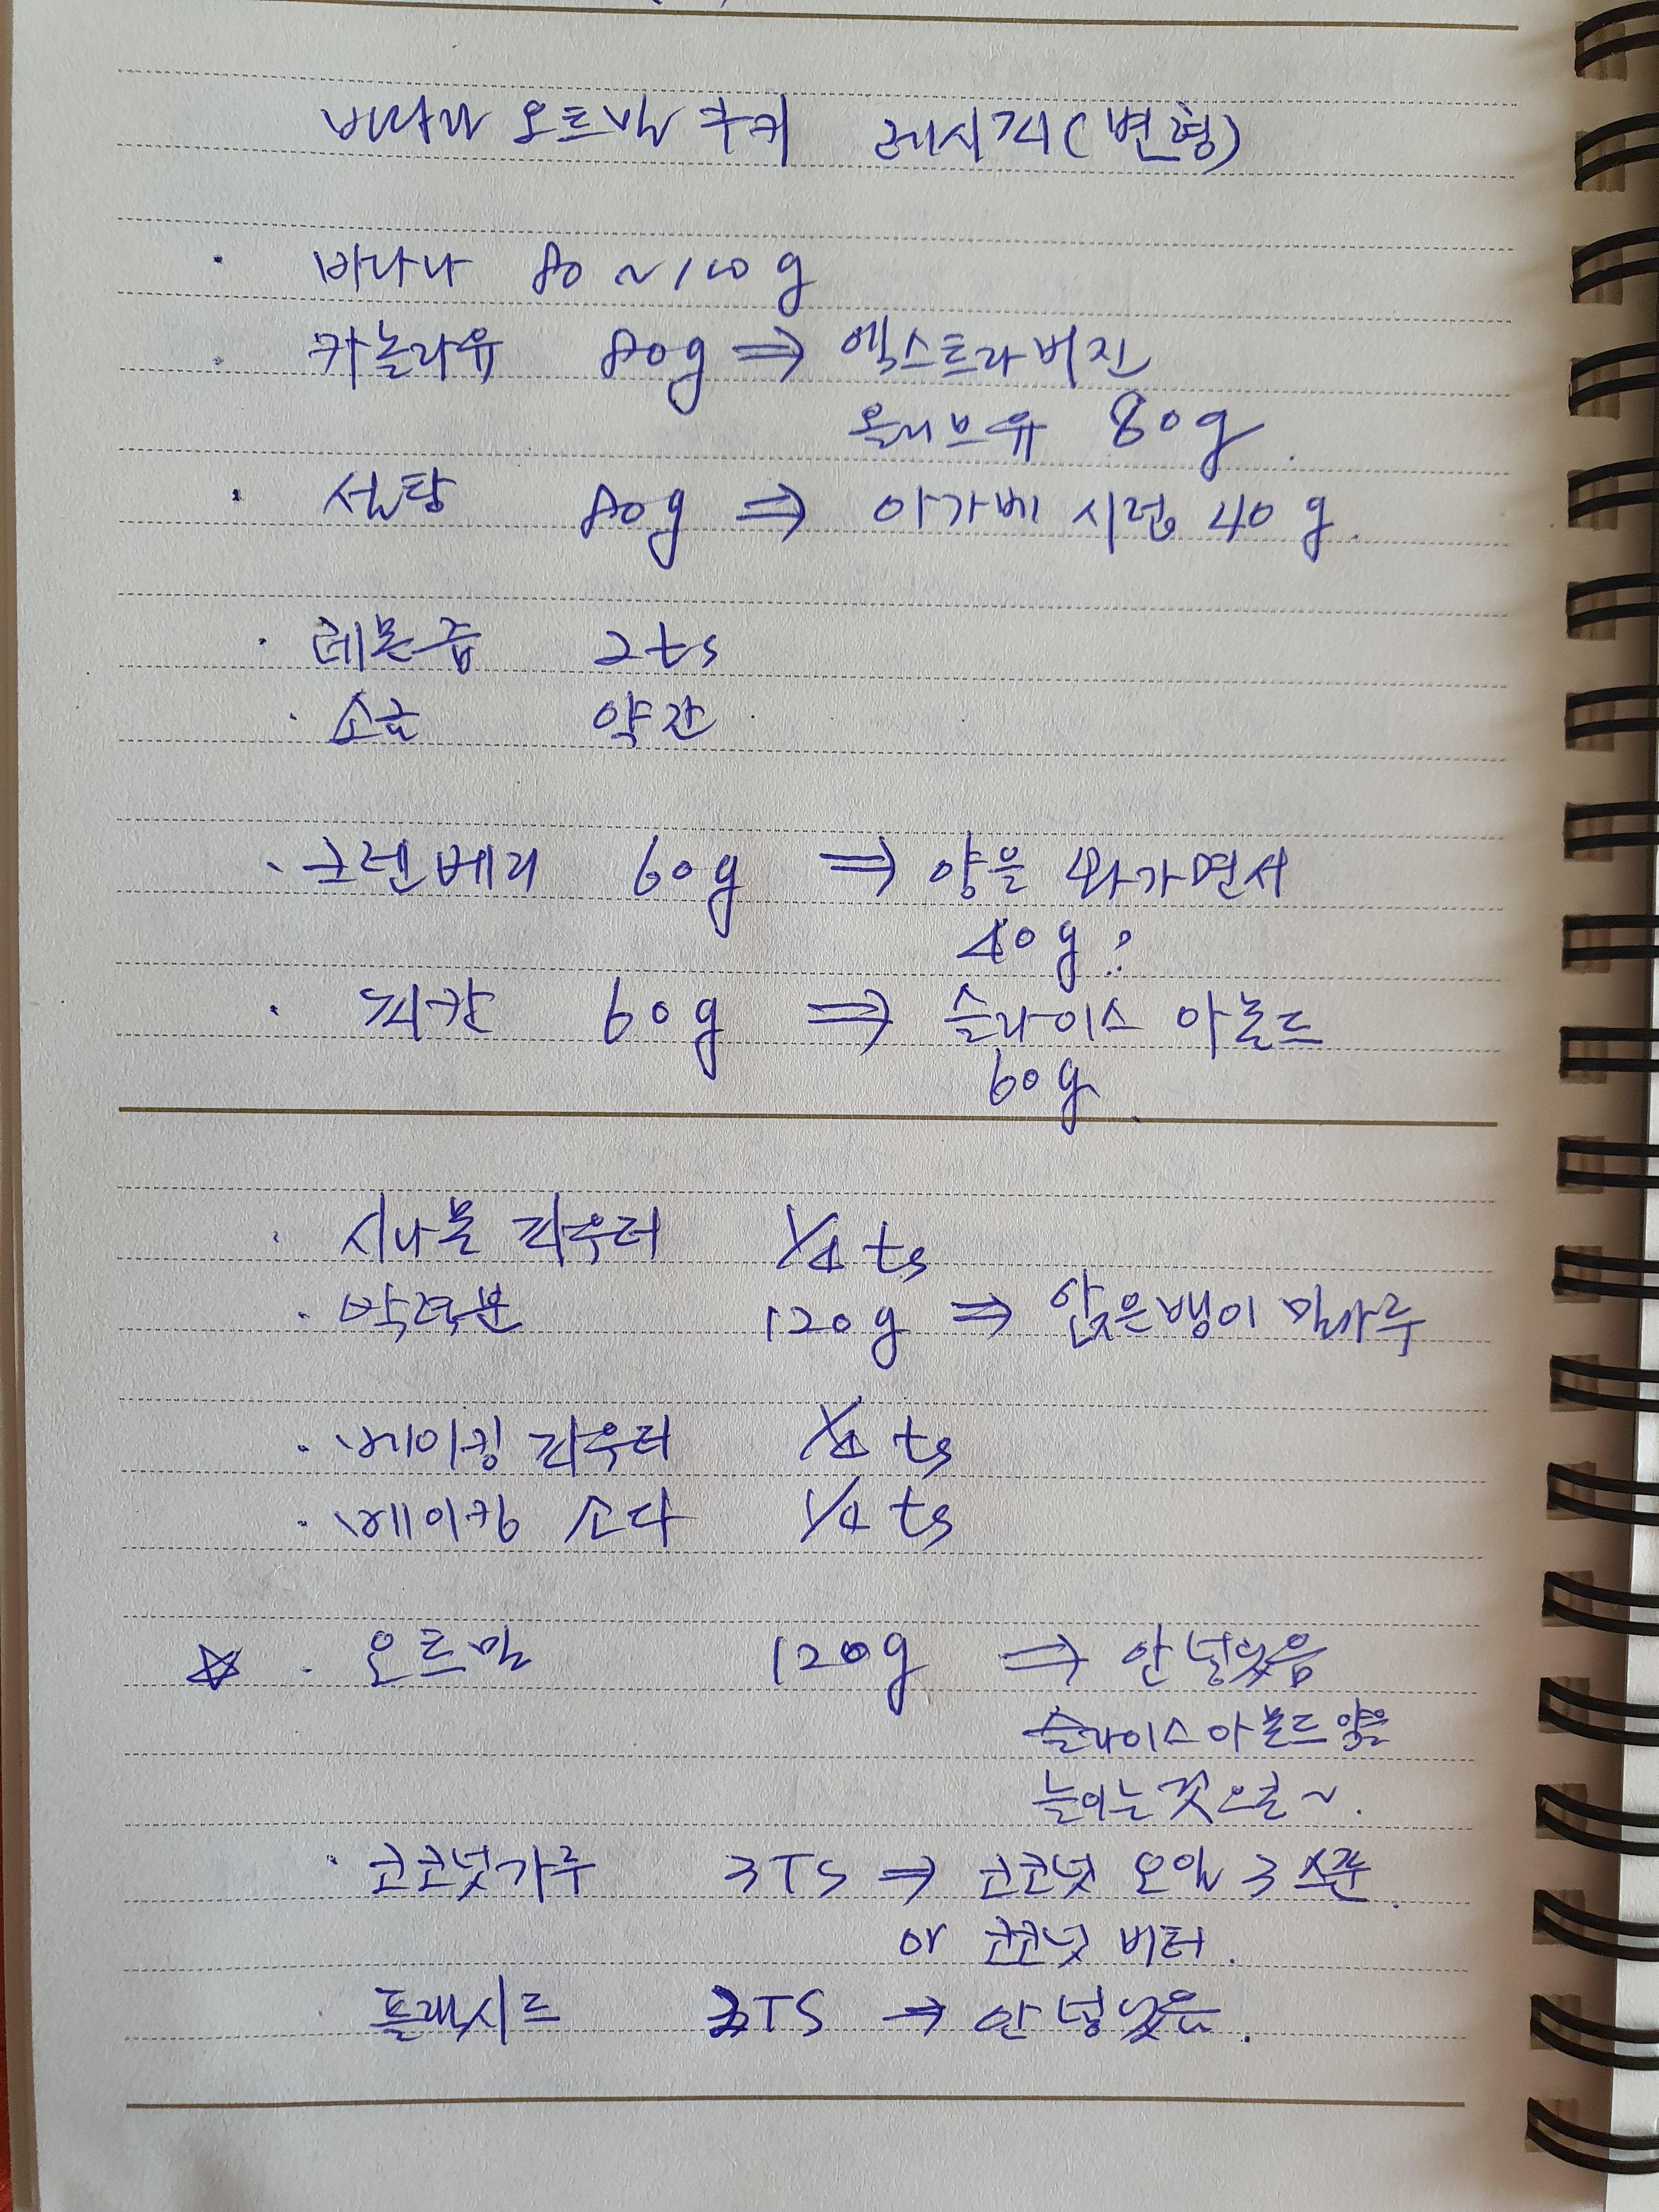 바나나 오트밀 쿠키 레시피(변형)
· 바나나 80~100g
· 카놀라유 80g ⇒ 엑스트라버진
올리브유 80g.
· 설탕 80g ⇒ 아가베 시럽 40g.
· 레몬즙 2ts
· 소금 약간
· 크렌베리 60g ⇒ 양을 봐가면서
40g?
· 피칸 60g ⇒ 슬라이스 아몬드
60g.
· 시나몬 파우더 1/4 ts
· 박력분 120g ⇒ 앉은뱅이 밀가루
· 베이킹 파우더 1/4 ts
· 베이킹 소다 1/4 ts
☆ · 오트밀 120g ⇒ 안 넣었음
슬라이스 아몬드 양을
늘이는 것으로~.
· 코코넛가루 3TS ⇒ 코코넛 오일 3 스푼.
or 코코넛 버터.
플랙시드 3TS → 안 넣었음.